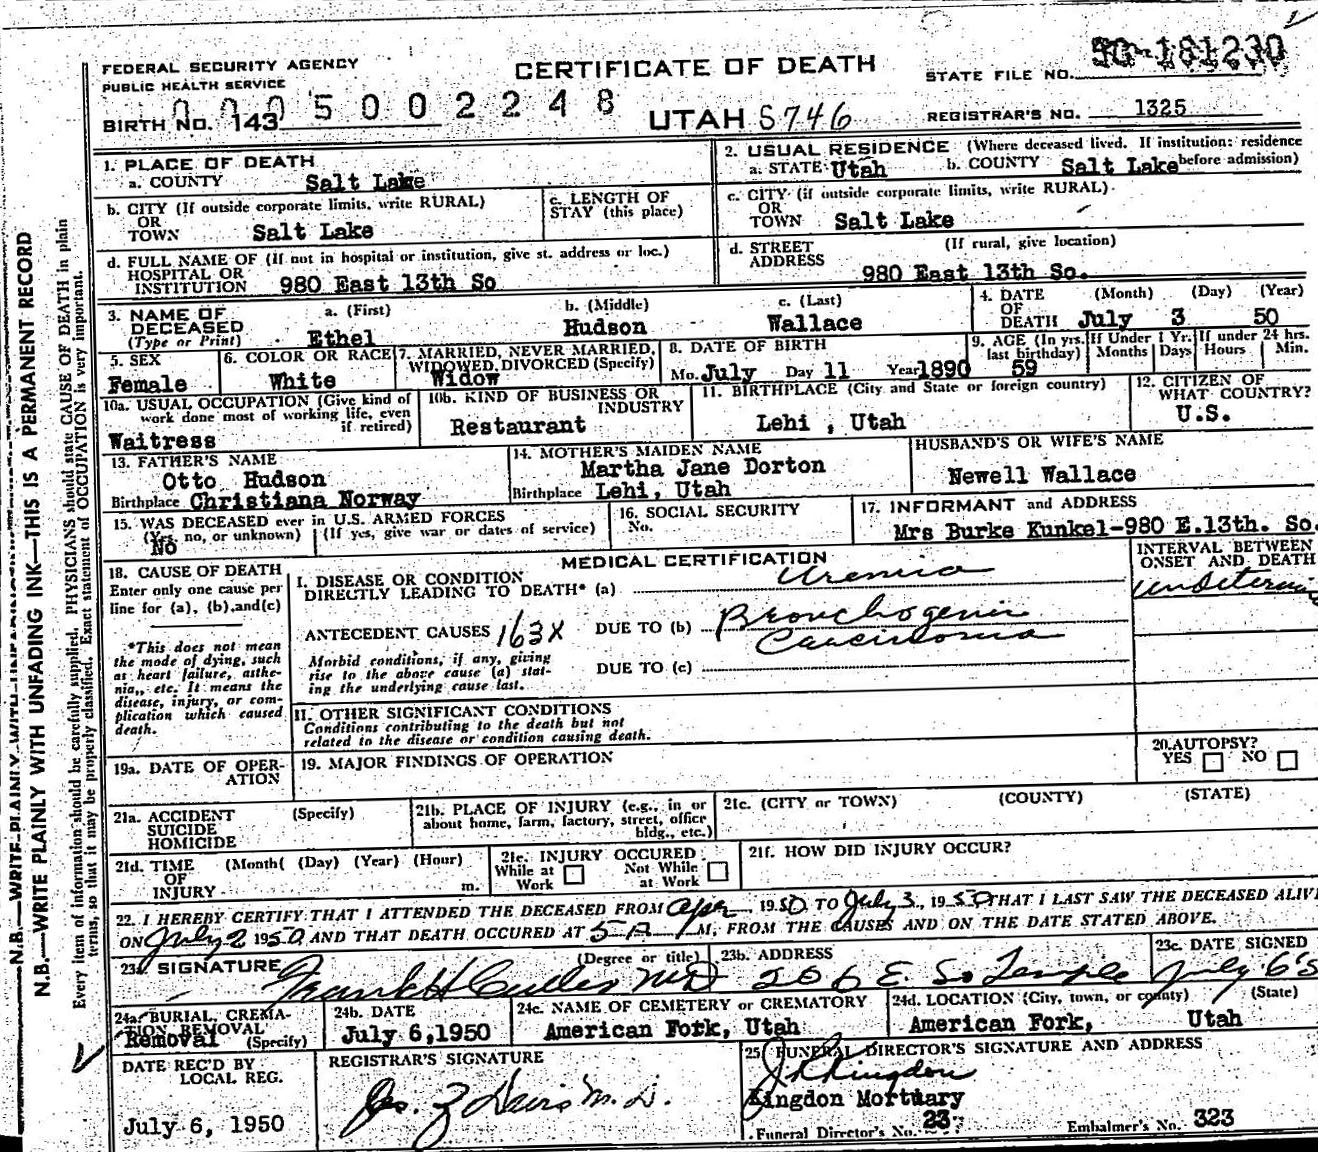 FEDERAL SECURITY AGENCY
PUBLIC HEALTH SERVICE
CERTIFICATE OF DEATH
STATE FILE NO. 50-181230
0005002248
BIRTH NO. 143
UTAH 5746
REGISTRAR'S NO. 1325
1. PLACE OF DEATH
a. COUNTY Salt Lake
2. USUAL RESIDENCE (Where deceased lived. If institution: residence
a. STATE Utah b. COUNTY Salt Lake before admission)
b. CITY (If outside corporate limits, write RURAL)
OR
TOWN Salt Lake
c. LENGTH OF
STAY (this place)
c. CITY (if outside corporate limits, write RURAL)
OR
TOWN Salt Lake
d. FULL NAME OF (If not in hospital or institution, give st. address or loc.)
HOSPITAL OR
INSTITUTION 980 East 13th So
d. STREET (If rural, give location)
ADDRESS
980 East 13th So.
3. NAME OF a. (First) b. (Middle) c. (Last)
DECEASED
(Type or Print) Ethel Hudson Wallace
4. DATE (Month) (Day) (Year)
OF
DEATH July 3 50
5. SEX
Female
6. COLOR OR RACE
White
7. MARRIED, NEVER MARRIED,
WIDOWED, DIVORCED (Specify)
Widow
8. DATE OF BIRTH
Mo. July Day 11 Year 1890
9. AGE (In yrs.
last birthday)
59
If Under 1 Yr.
Months Days
If under 24 hrs.
Hours Min.
10a. USUAL OCCUPATION (Give kind of
work done most of working life, even
if retired)
Waitress
10b. KIND OF BUSINESS OR
INDUSTRY
Restaurant
11. BIRTHPLACE (City and State or foreign country)
Lehi , Utah
12. CITIZEN OF
WHAT COUNTRY?
U.S.
13. FATHER'S NAME
Otto Hudson
Birthplace Christiana Norway
14. MOTHER'S MAIDEN NAME
Martha Jane Dorton
Birthplace Lehi, Utah
HUSBAND'S OR WIFE'S NAME
Newell Wallace
15. WAS DECEASED ever in U.S. ARMED FORCES
(Yes, no, or unknown) (If yes, give war or dates of service)
No
16. SOCIAL SECURITY
No.
17. INFORMANT and ADDRESS
Mrs Burke Kunkel-980 E.13th. So.
18. CAUSE OF DEATH
Enter only one cause per
line for (a), (b), and (c)
*This does not mean
the mode of dying, such
as heart failure, asthe-
nia, etc. It means the
disease, injury, or com-
plication which caused
death.
MEDICAL CERTIFICATION
I. DISEASE OR CONDITION
DIRECTLY LEADING TO DEATH* (a) Uremia
ANTECEDENT CAUSES 163X DUE TO (b) Bronchogenic
Carcinoma
Morbid conditions, if any, giving
rise to the above cause (a) stat-
ing the underlying cause last.
DUE TO (c)
INTERVAL BETWEEN
ONSET AND DEATH
II. OTHER SIGNIFICANT CONDITIONS
Conditions contributing to the death but not
related to the disease or condition causing death.
19a. DATE OF OPER-
ATION
19. MAJOR FINDINGS OF OPERATION
20. AUTOPSY?
YES NO
21a. ACCIDENT (Specify)
SUICIDE
HOMICIDE
21b. PLACE OF INJURY (e.g., in or
about home, farm, factory, street, office
bldg., etc.)
21c. (CITY or TOWN) (COUNTY) (STATE)
21d. TIME (Month( (Day) (Year) (Hour)
OF
INJURY m.
21e. INJURY OCCURED
While at Not While
Work at Work
21f. HOW DID INJURY OCCUR?
22. I HEREBY CERTIFY THAT I ATTENDED THE DECEASED FROM Apr 1950 TO July 3, 1950 THAT I LAST SAW THE DECEASED ALIVE
ON July 2 1950 AND THAT DEATH OCCURED AT 5 A M, FROM THE CAUSES AND ON THE DATE STATED ABOVE.
23a. SIGNATURE (Degree or title)
Frank H Cutler MD
23b. ADDRESS
206 E. So Temple
23c. DATE SIGNED
July 6
24a. BURIAL, CREMA-
TION, REMOVAL
Removal (Specify)
24b. DATE
July 6,1950
24c. NAME OF CEMETERY or CREMATORY
American Fork, Utah
24d. LOCATION (City, town, or county) (State)
American Fork, Utah
DATE REC'D BY
LOCAL REG.
July 6, 1950
REGISTRAR'S SIGNATURE
25. FUNERAL DIRECTOR'S SIGNATURE AND ADDRESS
J R Kingdon
Kingdon Mortuary
Funeral Director's No. 23 Embalmer's No. 323
N.B.—WRITE PLAINLY WITH UNFADING INK—THIS IS A PERMANENT RECORD
Every item of information should be carefully supplied, PHYSICIANS should state CAUSE OF DEATH in plain
terms, so that it may be properly classified. Exact statement of OCCUPATION is very important.